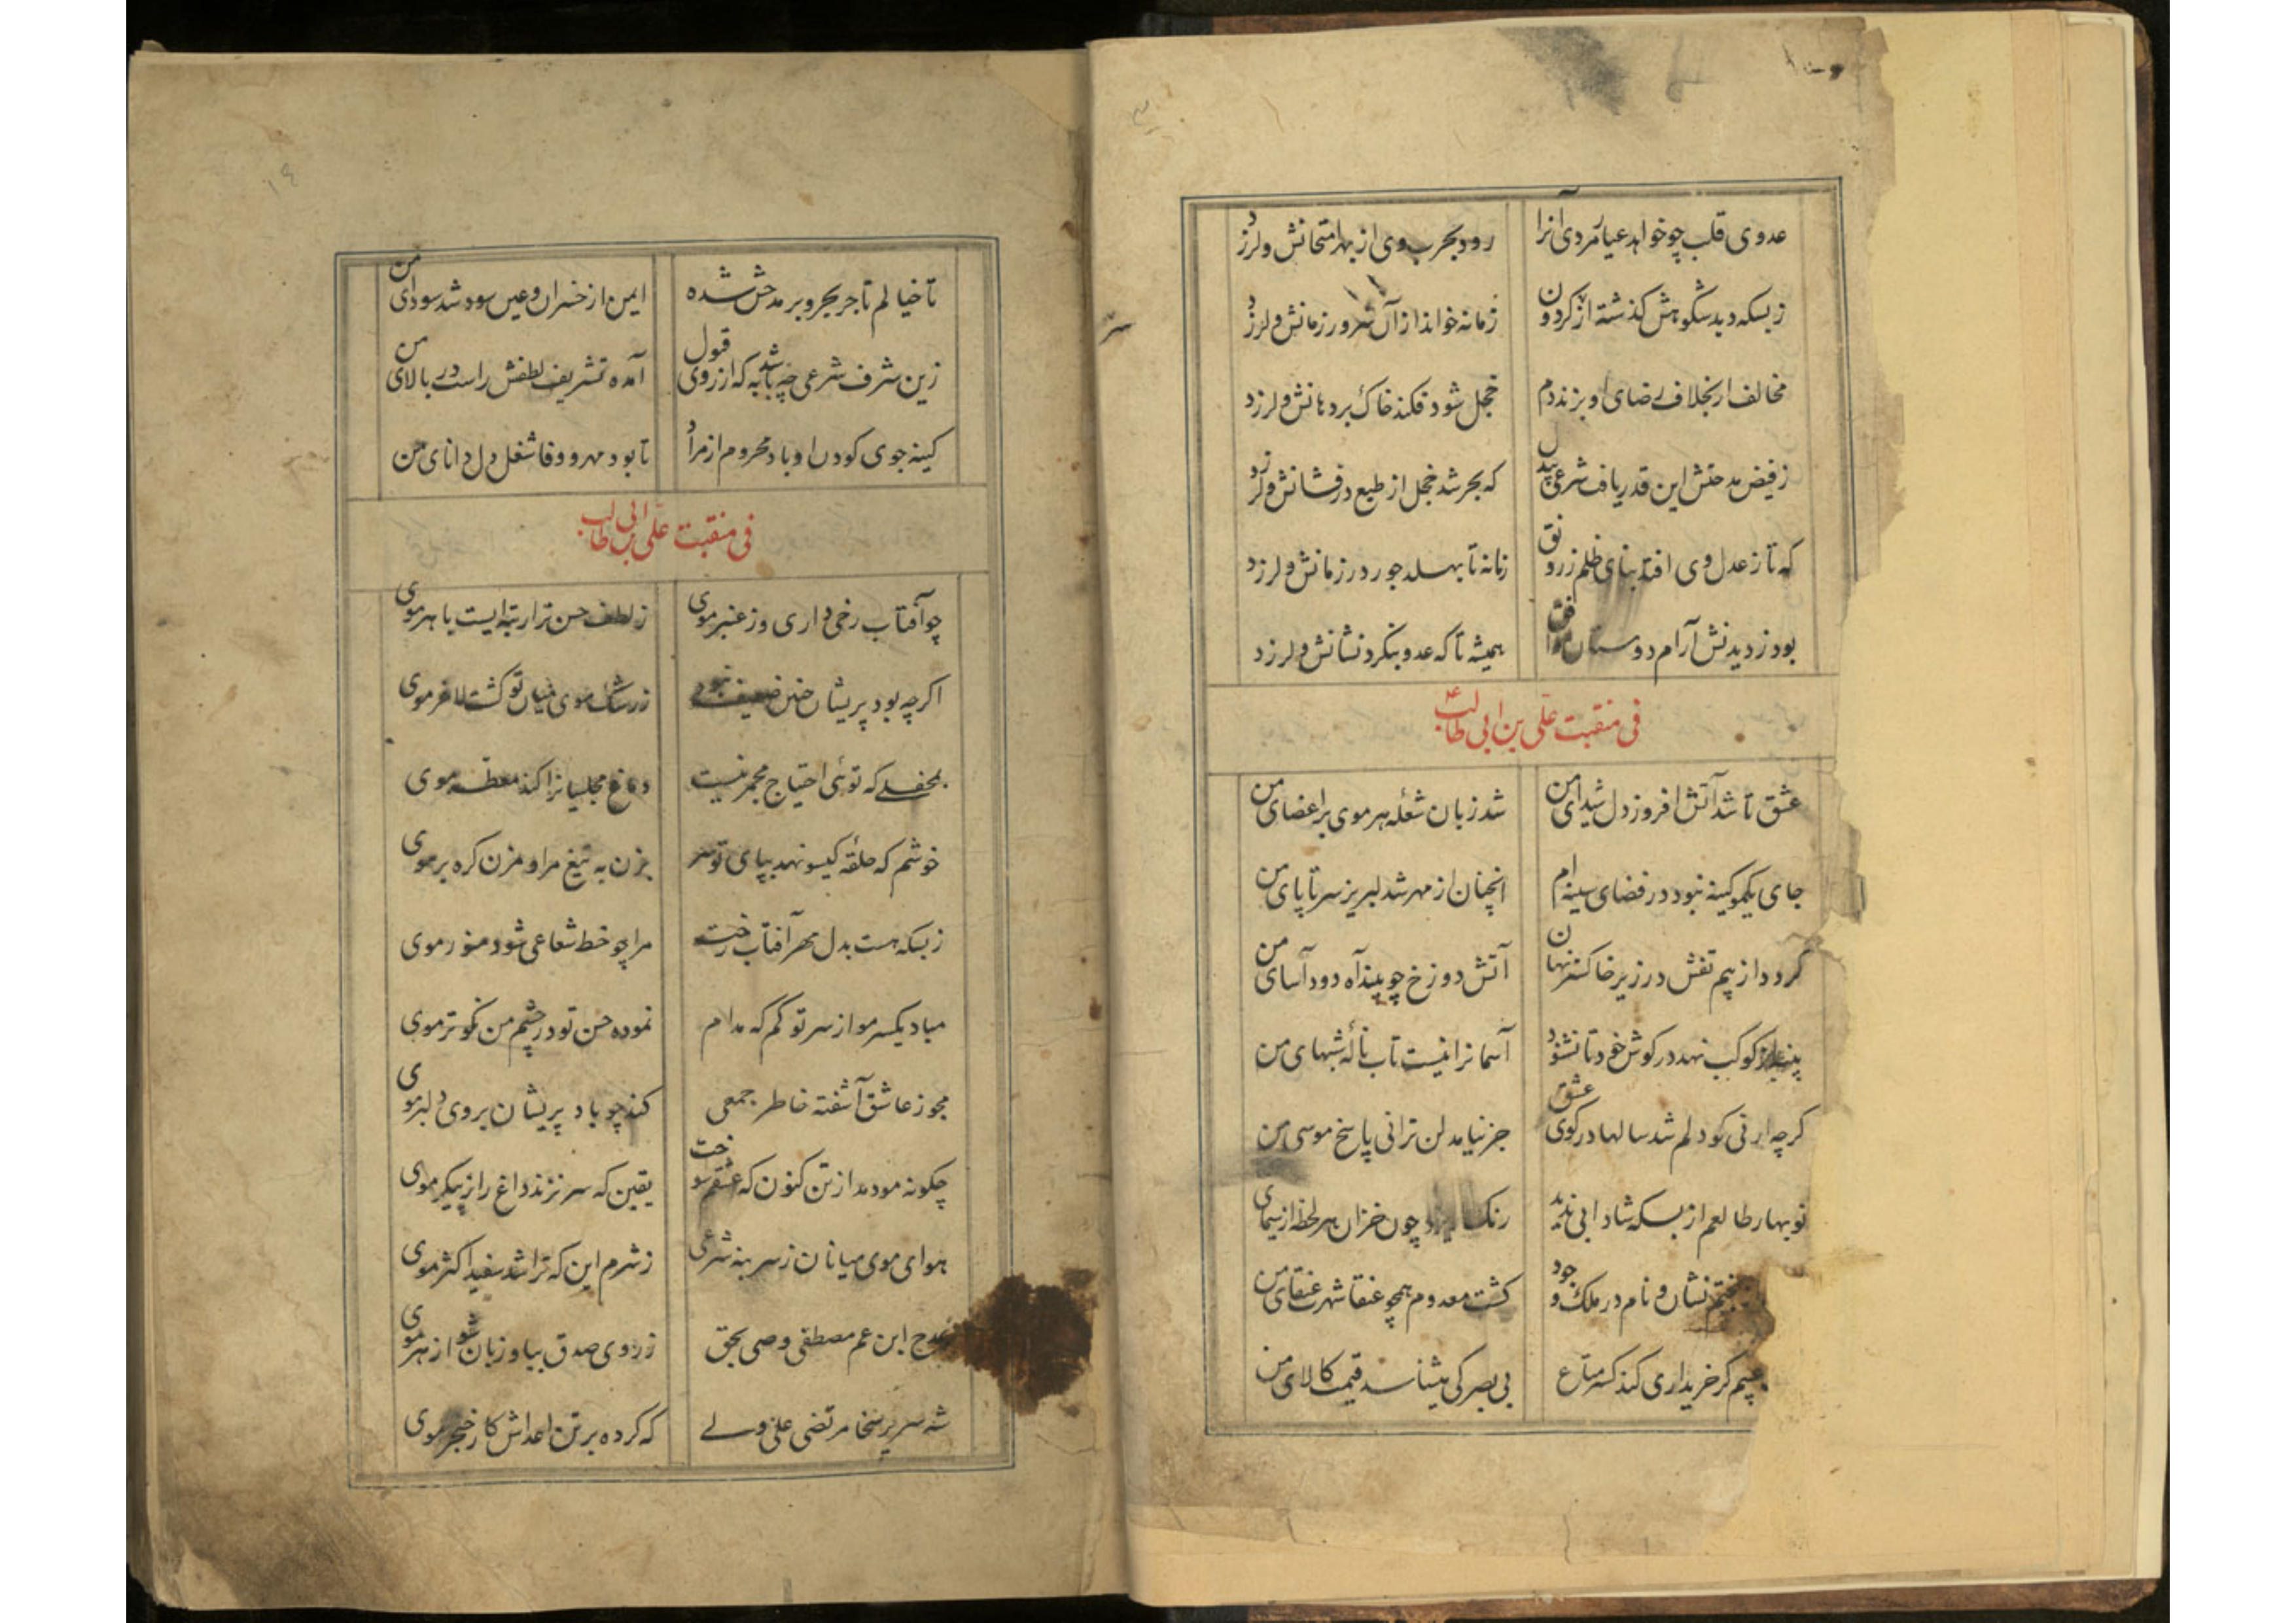 عدوی قلب چو خواهد عیار مردی آنرا
رود بحرب وی از بهر امتحانش و لرزد
زبسکه دید شکوهش گذشته از گردون
زمانه خواند از آن سرور زمانش و لرزد
مخالف ار بخلاف رضای او بزند دم
خجل شود فکند خاک بر دهانش و لرزد
زفیض مدحتش این قدر یافت شرعی بیدل
که بحر شد خجل از طبع درفشانش و لرزد
که تا ز عدل وی افتد بنای ظلم ز رونق
زمانه تا بهلد جور در زمانش و لرزد
بود ز دیدنش آرام دوستان موافق
همیشه تا که عدو بنگرد نشانش و لرزد
فی منقبت علی بن ابی طالب ع
عشق تا شد آتش افروز دل شیدای من
شد زبان شعله هر موی بر اعضای من
جای یکمو کینه نبود در فضای سینه ام
آنچنان از مهر شد لبریز سر تا پای من
گردد از بیم تفش در زیر خاکستر نهان
آتش دوزخ چو بیند آه دود آسای من
پنبه از کوکب نهد در گوش خود تا نشنود
آسمانرا نیست تاب نالهٔ شبهای من
گرچه ارنی گو دلم شد سالها در کوی عشق
جز نیامد لن ترانی پاسخ موسی من
نوبهار طالعم از بسکه شادابی ندید
رنگ چون خزان هر لحظه از سیمای
نشان و نام در ملک وجود
گشت معدوم همچو عنقا شهرت عنقای من
گر خریداری کند کس متاع
بی بصر کی میشناسد قیمت کالای من
۱۴
تا خیالم تاجر بحر و بر مدحش شده
ایمن از خسران و عین سود شد سودای من
زین شرف شرعی چه باشد به که از روی قبول
آمده تشریف لطفش راست در بالای من
کینه جوی کودن او باد محروم از مراد
تا بود مهر و وفا شغل دل دانای من
فی منقبت علی بن ابی طالب
چو آفتاب رخی داری و ز عنبر موی
ز لطف حسن ترا رتبه ایست با هر موی
اگرچه بود پریشان چنین ضعیف نبود
ز رشک موی میان تو گشت لاغر موی
بمحفلی که توئی احتیاج مجمر نیست
دماغ مجلسیانرا کند معطر موی
خوشم که حلقهٔ گیسو نهد بپای تو سر
بزن به تیغ مرا و مزن گره بر موی
زبسکه هست بدل مهر آفتاب رخت
مرا چو خط شعاعی شود منور موی
مباد یکسر مو از سر تو کم که مدام
نموده حسن تو در چشم من نکوتر موی
مجو ز عاشق آشفته خاطر جمعی
کند چو باد پریشان بروی دلبر موی
چگونه مو دمد از تن کنون که عشقم سوخت
یقین که سر نزند داغ را ز پیکر موی
هوای موی میانان ز سر بنه شرعی
ز شرم این که ترا شد سفید اکثر موی
بمدح ابن عم مصطفی وصی بحق
ز روی صدق بیا و زبان شو از هر موی
شه سریر سخا مرتضی علی ولی
که کرده بر تن اعداش کار خنجر موی